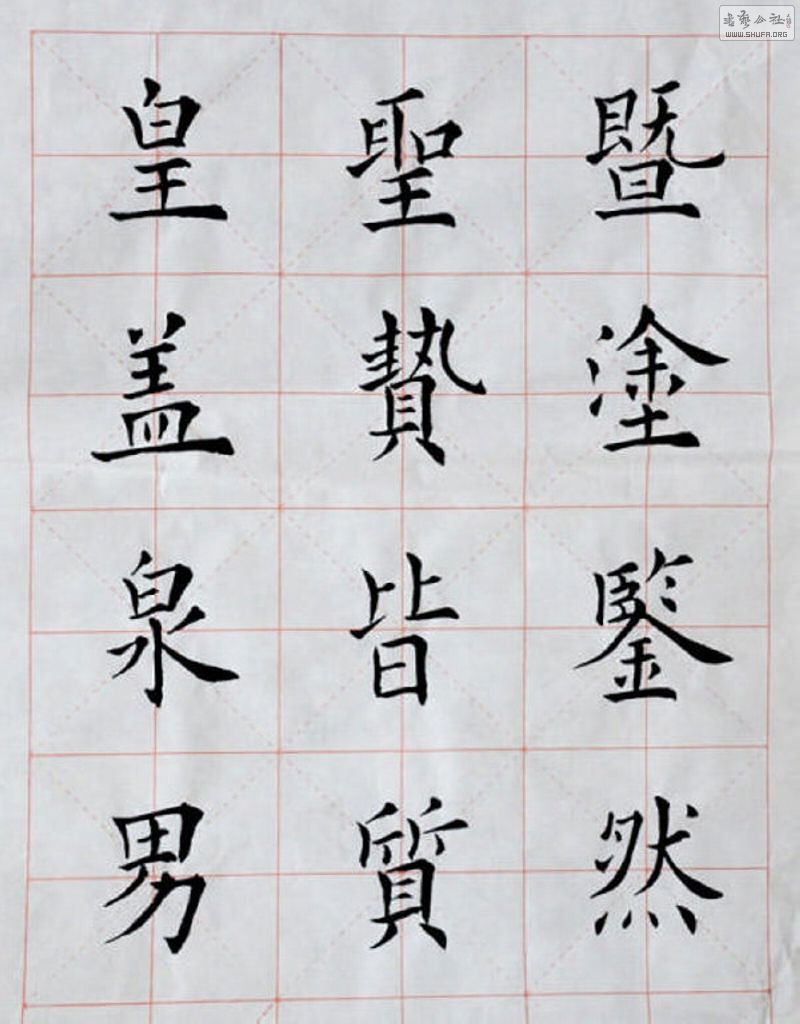 暨塗鑒然
聖贄皆質
皇盖泉男
书艺公社
www.SHUFA.ORG